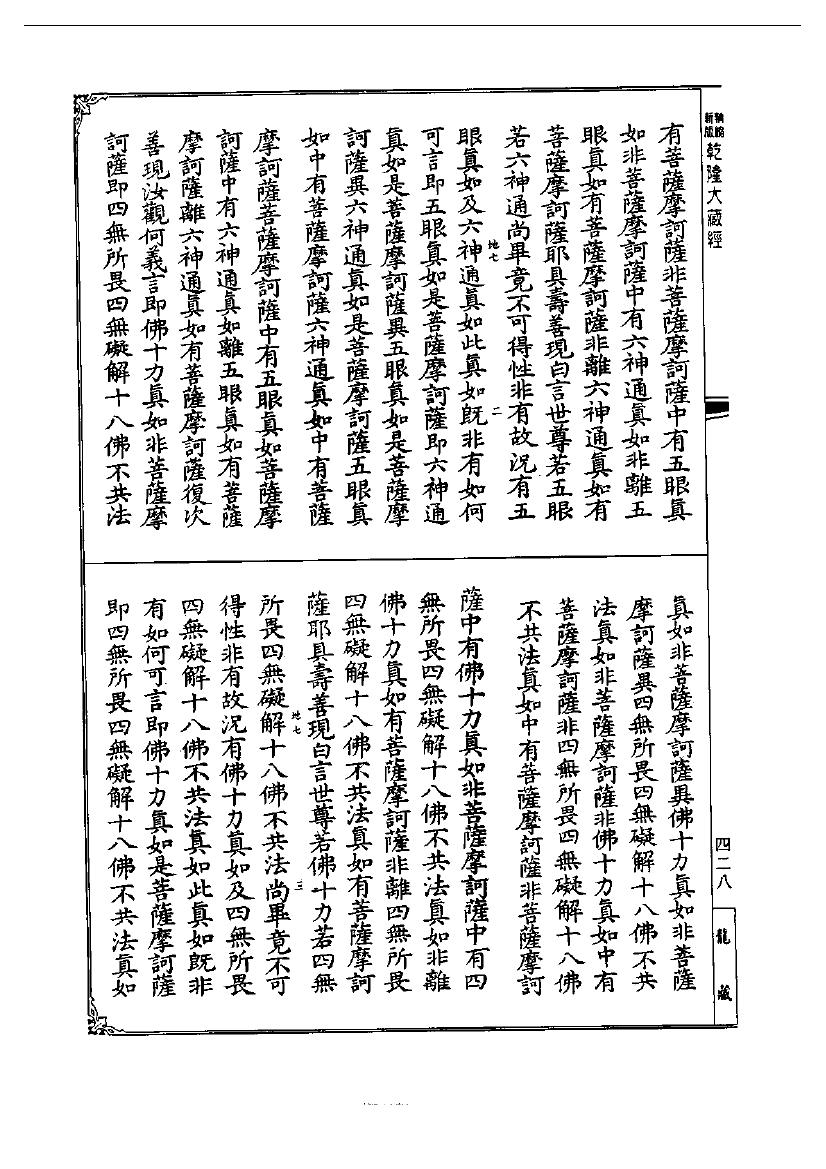 乾隆大藏經
有菩薩摩訶薩非菩薩摩訶薩中有五眼真
如非菩薩摩訶薩中有六神通真如非離五
眼真如有菩薩摩訶薩非離六神通真如有
菩薩摩訶薩耶具壽善現白言世尊若五眼
若六神通尚畢竟不可得性非有故況有五
地七
二
眼真如及六神通真如此真如既非有如何
可言即五眼真如是菩薩摩訶薩即六神通
真如是菩薩摩訶薩異五眼真如是菩薩摩
訶薩異六神通真如是菩薩摩訶薩五眼真
如中有菩薩摩訶薩六神通真如中有菩薩
摩訶薩菩薩摩訶薩中有五眼真如菩薩摩
訶薩中有六神通真如離五眼真如有菩薩
摩訶薩離六神通真如有菩薩摩訶薩復次
善現汝觀何義言即佛十力真如非菩薩摩
訶薩即四無所畏四無礙解十八佛不共法
真如非菩薩摩訶薩異佛十力真如非菩薩
摩訶薩異四無所畏四無礙解十八佛不共
法真如非菩薩摩訶薩非佛十力真如中有
菩薩摩訶薩非四無所畏四無礙解十八佛
不共法真如中有菩薩摩訶薩非菩薩摩訶
薩中有佛十力真如非菩薩摩訶薩中有四
無所畏四無礙解十八佛不共法真如非離
佛十力真如有菩薩摩訶薩非離四無所畏
四無礙解十八佛不共法真如有菩薩摩訶
薩耶具壽善現白言世尊若佛十力若四無
地七
三
所畏四無礙解十八佛不共法尚畢竟不可
得性非有故況有佛十力真如及四無所畏
四無礙解十八佛不共法真如此真如既非
有如何可言即佛十力真如是菩薩摩訶薩
即四無所畏四無礙解十八佛不共法真如
四二八
龍藏